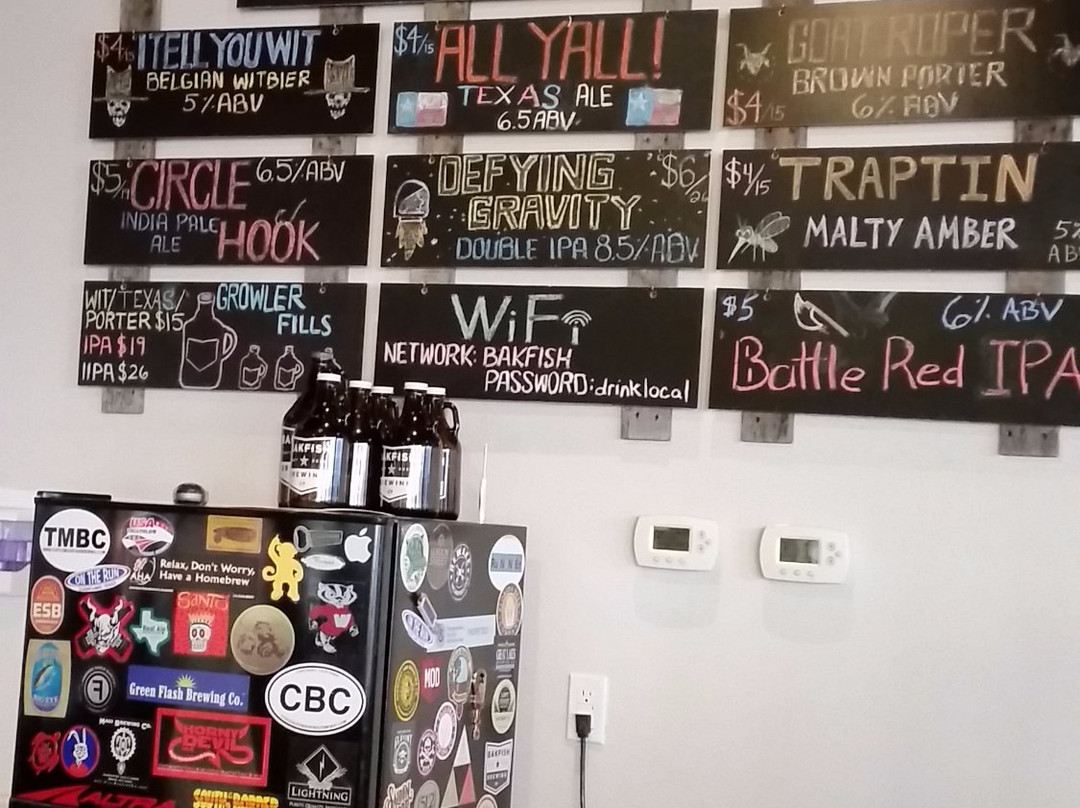 $4/15 I TELL YOU WIT
BELGIAN WITBIER
5% ABV
$4/15 ALL YALL!
TEXAS ALE
6.5 ABV
GOAT ROPER
BROWN PORTER
$4/15 6% ABV
$5/ CIRCLE 6.5% ABV
INDIA PALE
ALE HOOK
DEFYING $6/26
GRAVITY
DOUBLE IPA 8.5% ABV
$4/15 TRAPTIN
MALTY AMBER 5%
AB
WIT/TEXAS/
PORTER $15
IPA $19
IIPA $26
GROWLER
FILLS
WiFi
NETWORK: BAKFISH
PASSWORD: drinklocal
$5 6% ABV
Battle Red IPA
AKFIS
EWIN
AKFIS
EWIN
TMBC
USA
ON THE RUN
AHA
Relax, Don't Worry,
Have a Homebrew
ESB
SANTO
Real Ale
MOD
Green Flash Brewing Co.
CBC
HORNY
DEVIL
LIGHTNING
BAKFISH
BREWING
ALTRA
512